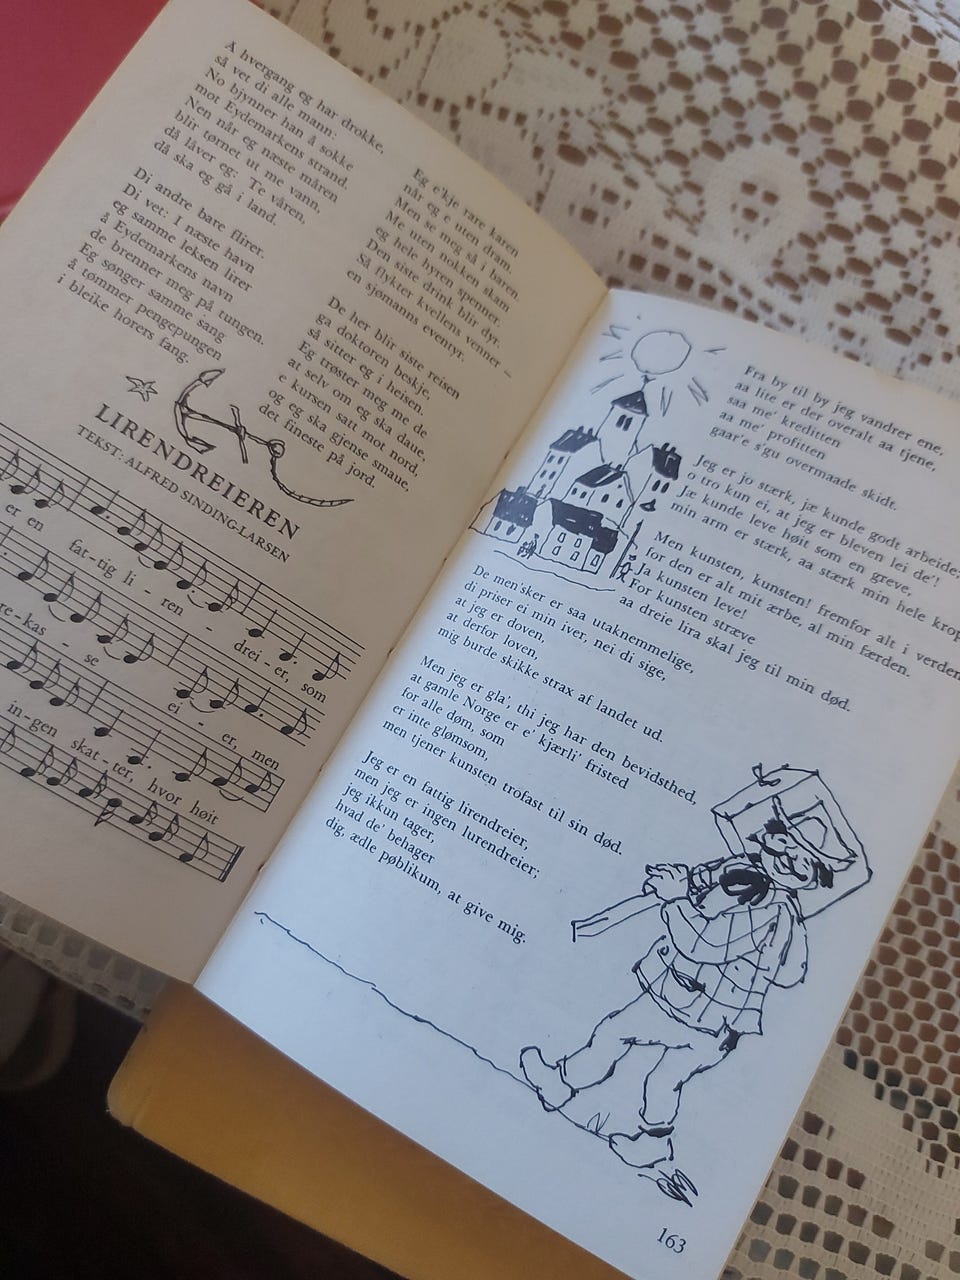 Å hvergang eg har drokke,
så vet di alle mann:
No bjynner han å sokke
mot Eydemarkens strand.
Nen når eg næste måren
blir tørnet ut me vann,
då låver eg: Te våren,
då ska eg gå i land.
Di andre bare flirer.
Di vet: I næste havn
eg samme leksen lirer
å Eydemarkens navn
de brenner meg på tungen.
Eg sønger samme sang
å tømmer pengepungen
i bleike horers fang.
Eg e'kje rare karen
når eg e uten dram.
Men se meg så i baren.
Me uten nokken skam
eg hele hyren spenner.
Den siste drink blir dyr.
Så flykter kvellens venner –
en sjømanns eventyr.
De her blir siste reisen
ga doktoren beskje,
så sitter eg i heisen.
Eg trøster meg me de
at selv om eg ska daue,
e kursen satt mot nord,
og eg ska gjense smaue,
det fineste på jord.
LIRENDREIEREN
TEKST: ALFRED SINDING-LARSEN
er en fat-tig li - ren - drei-er, som
re-kas - se ei - er, men
in-gen skat-ter, hvor høit
Fra by til by jeg vandrer ene,
aa lite er der overalt aa tjene,
saa me' kreditten
aa me' profitten
gaar'e s'gu overmaade skidt.
Jeg er jo stærk, jæ kunde godt arbeide;
o tro kun ei, at jeg er bleven lei de'!
Jæ kunde leve høit som en greve,
min arm er stærk, aa stærk min hele krop
Men kunsten, kunsten! fremfor alt i verden
for den er alt mit ærbe, al min færden.
Ja kunsten leve!
For kunsten stræve
aa dreie lira skal jeg til min død.
De men'sker er saa utaknemmelige,
di priser ei min iver, nei di sige,
at jeg er doven,
at derfor loven,
mig burde skikke strax af landet ud.
Men jeg er gla', thi jeg har den bevidsthed,
at gamle Norge er e' kjærli' fristed
for alle døm, som
er inte glømsom,
men tjener kunsten trofast til sin død.
Jeg er en fattig lirendreier,
men jeg er ingen lurendreier;
jeg ikkun tager,
hvad de' behager
dig, ædle pøblikum, at give mig.
163